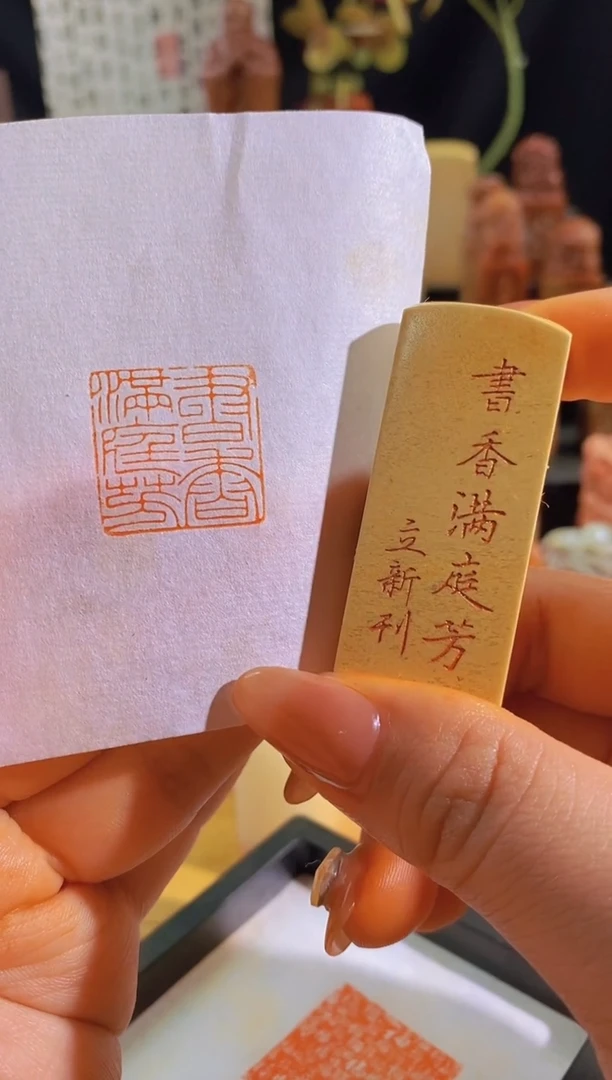 書香
滿庭芳
書香满庭芳
立新刊